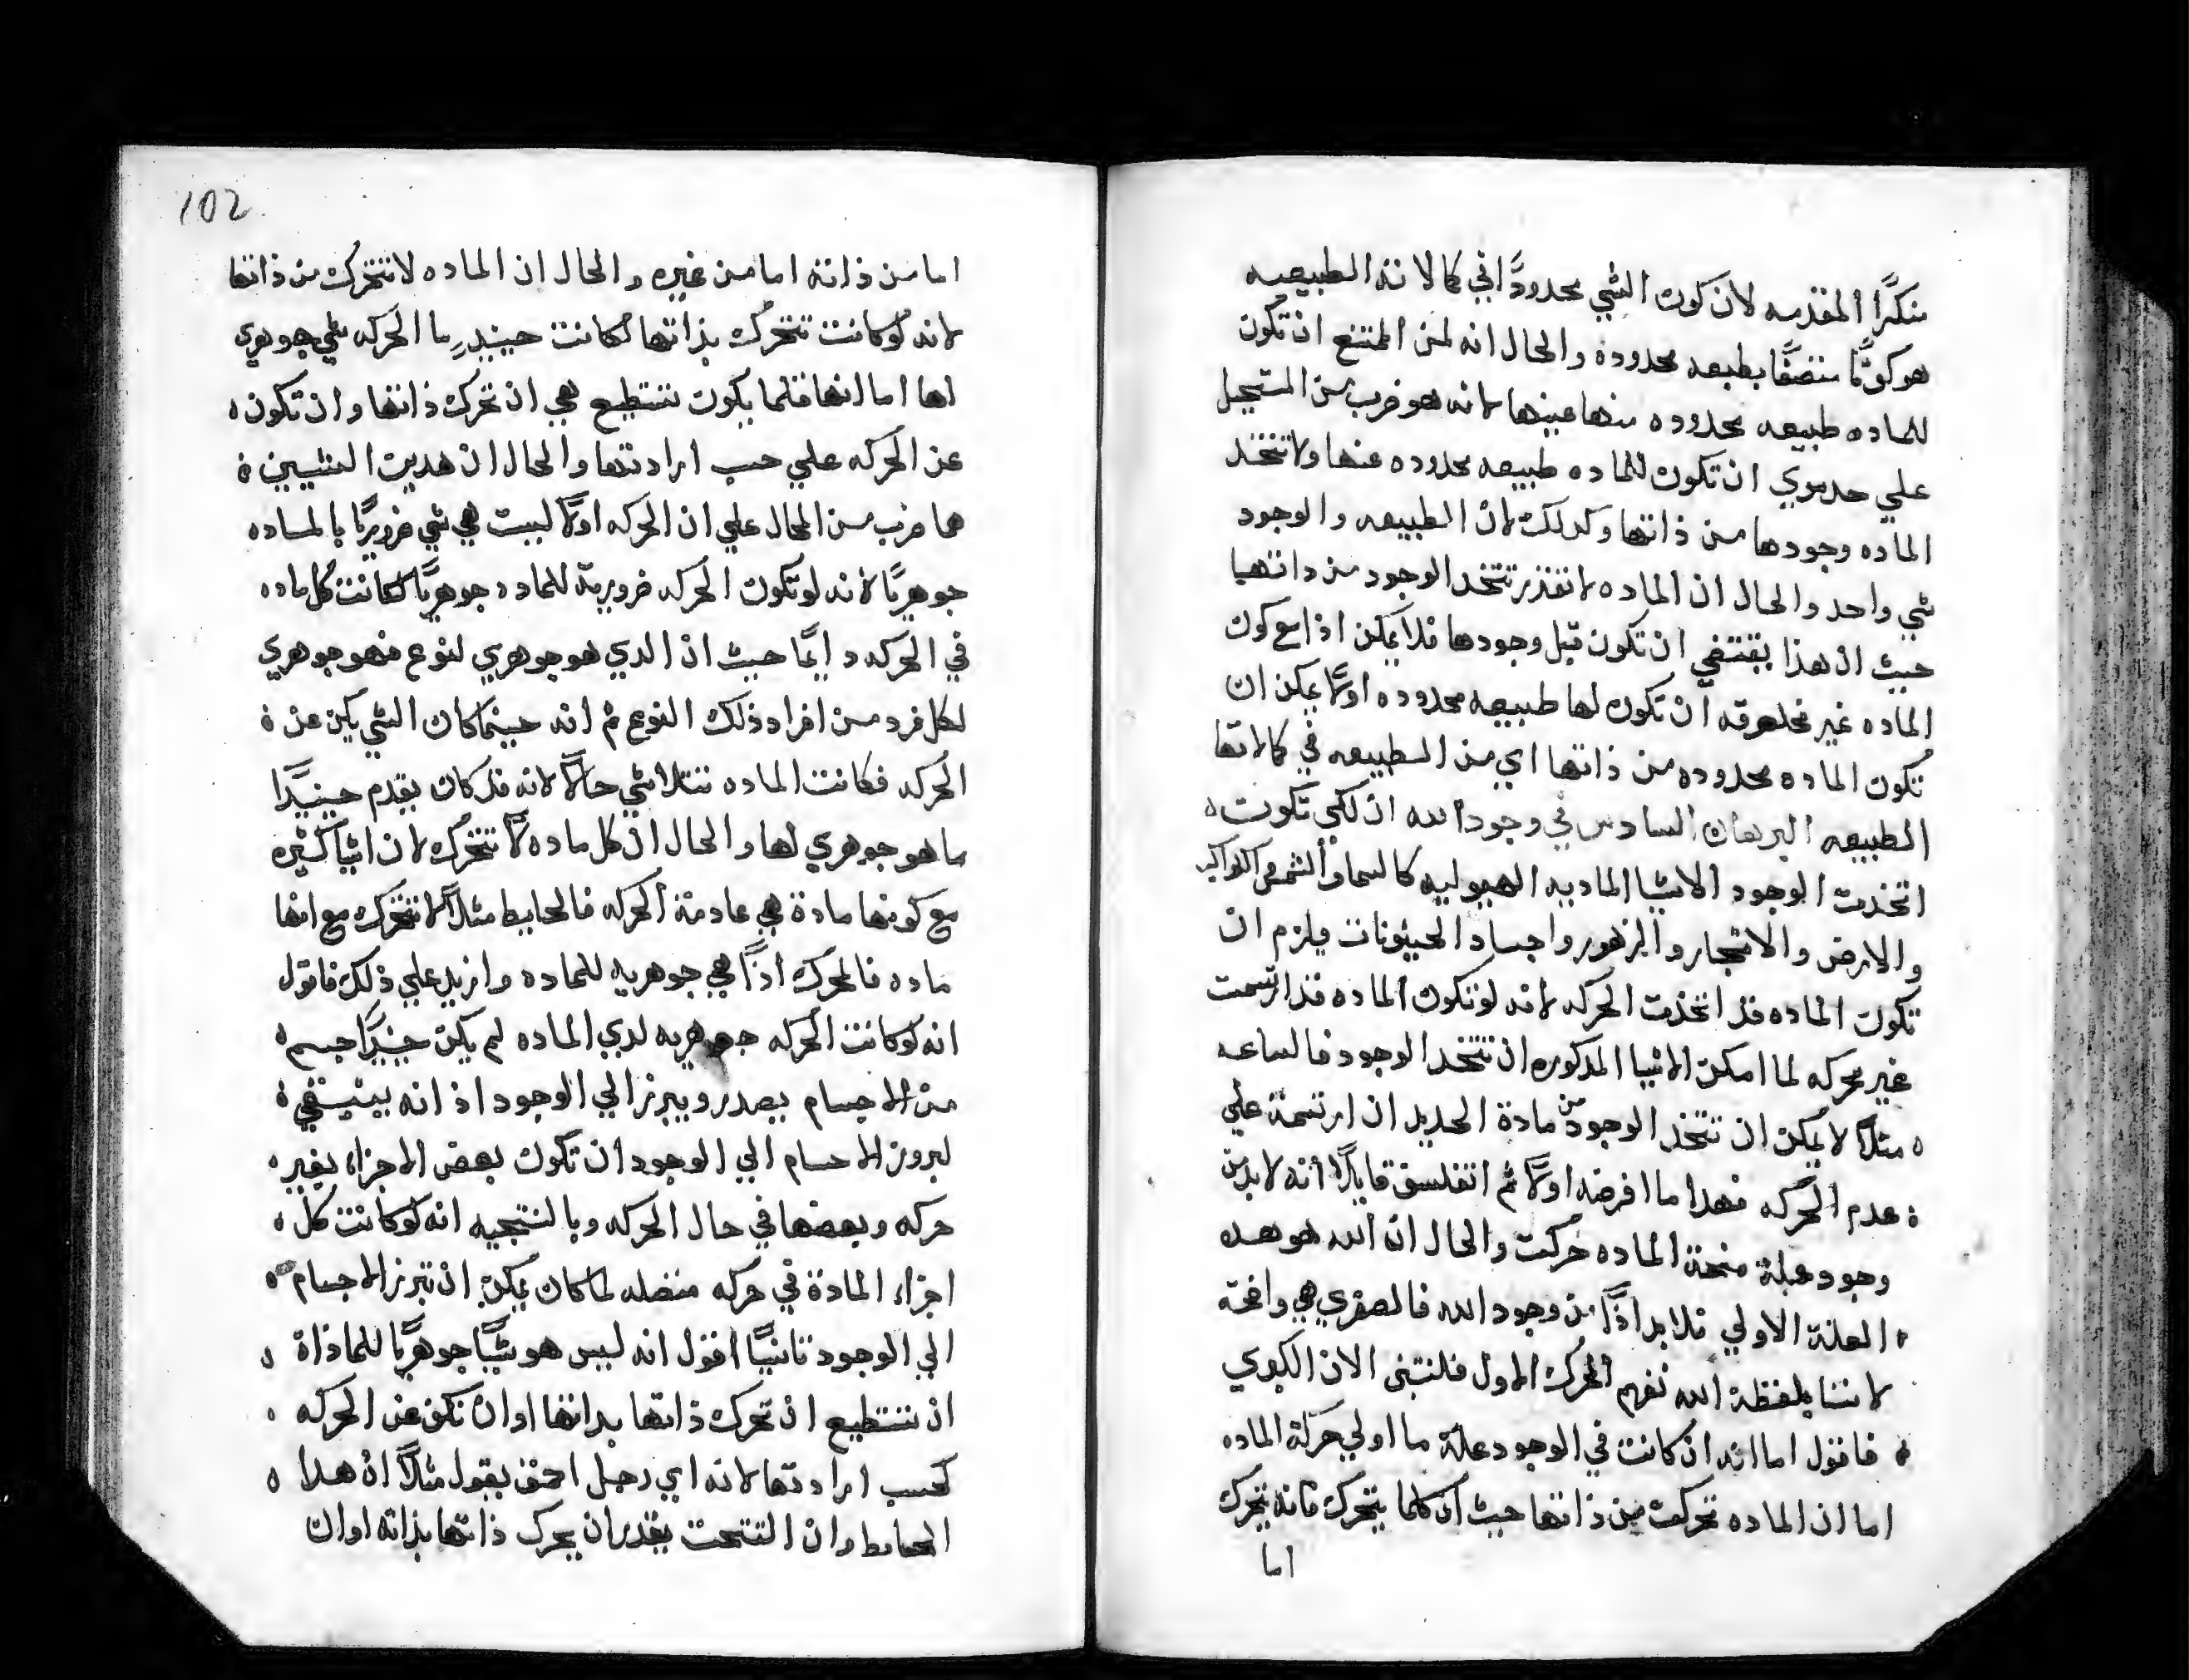 منكرًا المقدمه لان كون الشي محدودًا في كمالاته الطبيعيه
هو كونًا متصفًا بطبعه محدوده والحال انه لمن الممتنع ان تكون
للماده طبيعه محدوده منها عينها لانه هو ضرب من المستحيل
علي حد سوي ان تكون للماده طبيعه محدوده عنها ولا تتخد
الماده وجودها من ذاتها وكدلك لان الطبيعه والوجود
شي واحد والحال ان الماده لا تقدر تتخد الوجود من داتها
حيث ان هذا يقتضي ان تكون قبل وجودها فلا يمكن اذا مع كون
الماده غير مخلوقه ان تكون لها طبيعه محدوده اولًا يمكن ان
تكون الماده محدوده من ذاتها اي من الطبيعه في كمالاتها
الطبيعه البرهان السادس في وجود الله ان لكي تكون
اتخذت الوجود الاشيا الماديه الهيوليه كالسما والشمس والكواكب
والارض والاشجار والزهور واجساد الحيونات يلزم ان
تكون الماده قد اتخذت الحركه لانه لو تكون الماده قد ارتسمت
غير محركه لما امكن الاشيا المدكوره ان تتخد الوجود فالساعه
مثلًا لا يمكن ان تتخذ الوجود من مادة الحديد ان ارتسمة علي
عدم الحركه فهدا ما افرضه اولًا ثم اتفلسق قايلًا انه لا بد من
وجود علة منحة الماده حركت والحال ان الله هو هده
العلة الاولي فلا بد اذًا من وجود الله فالصغري هي واضحة
لاننا بلفظة الله نفهم المحرك الاول فلنتبنى الان الكبري
فاقول اما انه ان كانت في الوجود علة ما اولي حركة الماده
اما ان الماده تحركت من ذاتها حيث ان كلما يتحرك فانه يتحرك
اما
102
اما من ذاته اما من غيره والحال ان الماده لا تتحرك من ذاتها
لانه لو كانت تتحرك بذاتها لكانت حينيدٍ ما الحركه شي جوهري
لها اما انها قلما يكون تستطيع هي ان تحرك ذاتها وان تكون
عن الحركه علي حسب ارادتها والحال ان هدين الشيين
هما ضرب من المحال علي ان الحركه اولًا ليست هي شي ضروريًا بالماده
جوهريًا لانه لو تكون الحركه ضرورية للماده جوهريًا لكانت كل ماده
في الحركه دايمًا حيث ان الدي هو جوهري لنوع فهو جوهري
لكل فرد من افراد ذلك النوع ثم انه حينما كان الشي يكن عن
الحركه فكانت الماده تتلاشي حالًا لانه قد كان يقدم حينيدًا
ما هو جوهري لها والحال ان كل ماده لا تتحرك لان اشيا كثيره
مع كونها مادة هي عادمة الحركه فالحايط مثلًا لا تتحرك مع انها
ماده فالمحرك اذًا هي جوهريه للماده وازيد علي ذلك فاقول
انه لو كانت الحركه جوهريه لدي الماده لم يكن حينيدًا جسم
من الاجسام يصدر ويبرز الي الوجود اذ انه
لبروز الاجسام الي الوجود ان تكون بعض الاجزاء بغير
حركه وبعضها في حال الحركه وبالنتيجيه انه لو كانت كل
اجزاء المادة في حركه متصله لما كان يمكن ان تبرز الاجسام
الي الوجود تانيًا اقول انه ليس هو شيًا جوهريًا للماداة
ان تستطيع ان تحرك ذاتها بداتها او ان تكن عن الحركه
كحسب ارادتها لانه اي رجل احمق يقول مثلًا ان هدا
الحايط وان التتحت يقدر ان يحرك ذاتها بذاته او ان